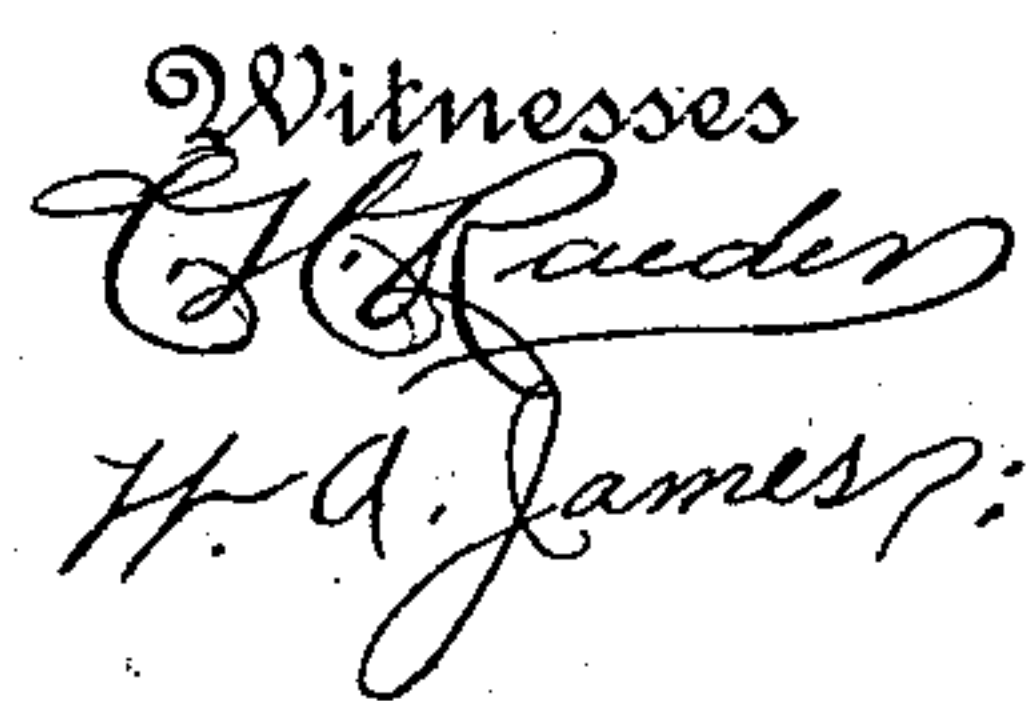 Witnesses
Raeder
H. A. James